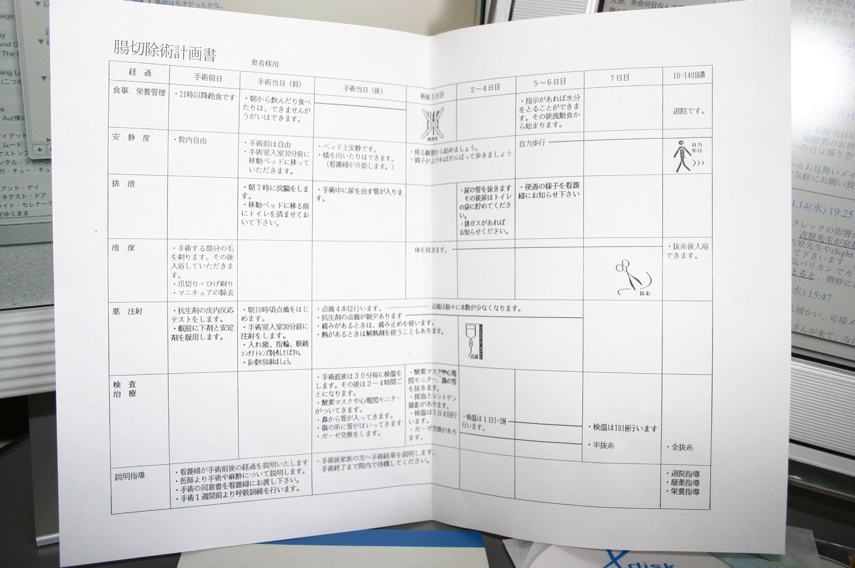 腸切除術計画書
患者様用
経過
手術前日
手術当日（前）
手術当日（後）
術後1日目
2〜4日目
5〜6日目
7日目
10-14日以降
食事 栄養管理
・21時以降絶食です
・朝から飲んだり食べ
たりは、できませんが
うがいはできます。
・指示があれば水分
をとることができま
す。その後流動食か
ら始まります。
退院です。
安静度
・院内自由
・手術前は自由
・手術室入室30分前に
移動ベッドに移って
いただきます。
・ベッド上安静です。
・横を向いたりはできます。
（看護婦が介助します。）
・座る練習から始めましょう。
・調子がよければがんばって歩きましょう
自力歩行
自力
歩行
排泄
・朝7時に浣腸をし
ます。
・移動ベッドに移る前
にトイレを済ませてお
いて下さい。
・手術中に尿を出す管が入りま
す。
・尿の管を抜きます
その後尿はトイレ
の袋に貯めてくださ
い。
・排ガスがあれば
お知らせください。
・便通の様子を看護
婦にお知らせ下さい
清潔
・手術する部分の毛
を剃ります。その後
入浴していただきま
す。
・爪切り・ひげ剃り
・マニキュアの除去
体を拭きます。
抜糸
・抜糸後入浴
できます。
薬 注射
・抗生剤の皮内反応
テストをします。
・眠前に下剤と安定
剤を服用します。
・朝10時頃点滴をはじ
めます。
・手術室入室30分前に
注射をします。
・入れ歯、指輪、眼鏡
・点滴4本位行います。
・抗生剤の点滴が朝夕あります
・痛みがあるときは、痛み止めを使います。
・熱があるときは解熱剤を使うこともあります。
点滴は徐々に本数が少なくなります。
点滴
検査
治療
・手術直後は30分毎に検温を
します。その後は2〜4時間ご
とになります。
・酸素マスクや心電図モニター
がついてきます。
・鼻から管が入ってきます。
・傷の所に管がはいってきます
・ガーゼ交換をします。
・酸素マスクや心電
図モニター、鼻の管
を抜きます。
・採血とレントゲン
撮影があります。
・検温は1日4回行
います。
・ガーゼ交換があり
ます。
・検温は1日1~2回
行います。
・検温は1日1回行います
・半抜糸
・全抜糸
説明指導
・看護婦が手術前後の経過を説明いたします
・医師より手術や麻酔について説明します。
・手術の同意書を看護婦にお渡し下さい。
・手術1週間前より呼吸訓練を行います。
・手術後家族の方へ手術結果を説明します。
手術終了まで院内で待機してください。
・退院指導
・服薬指導
・栄養指導
X disk